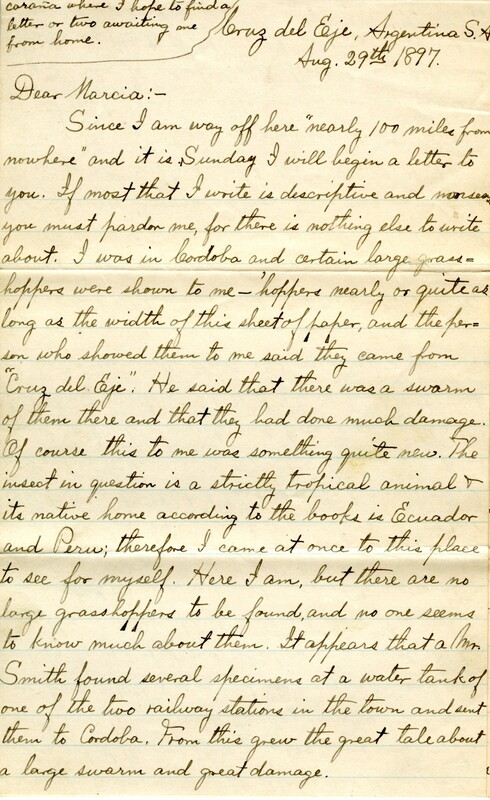 caraña where I hope to find a
letter or two awaiting me
from home.
Cruz del Eje, Argentina S. A
Aug. 29th 1897.
Dear Marcia:-
Since I am way off here "nearly 100 miles from
nowhere" and it is Sunday I will begin a letter to
you. If most that I write is descriptive and
you must pardon me, for there is nothing else to write
about. I was in Cordoba and certain large grass=
hoppers were shown to me - 'hoppers nearly or quite as
long as the width of this sheet of paper, and the per-
son who showed them to me said they came from
"Cruz del Eje". He said that there was a swarm
of them there and that they had done much damage.
Of course this to me was something quite new. The
insect in question is a strictly tropical animal &
its native home according to the books is Ecuador
and Peru; therefore I came at once to this place
to see for myself. Here I am, but there are no
large grasshoppers to be found, and no one seems
to know much about them. It appears that a Mr.
Smith found several specimens at a water tank of
one of the two railway stations in the town and sent
them to Cordoba. From this grew the great tale about
a large swarm and great damage.